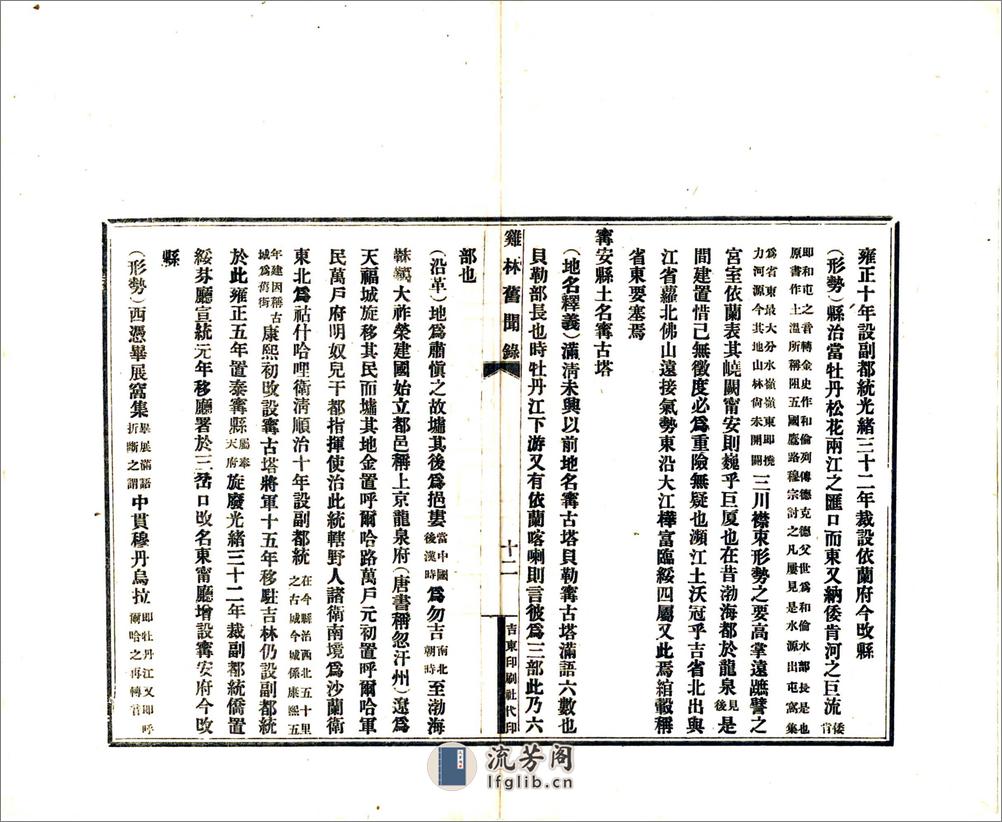 雍正十年設副都統光緒三十二年裁設依蘭府今改縣
(形勢)縣治當牡丹松花兩江之匯口而東又納倭肯河之巨流倭肯
即和屯之音轉金史作和倫列傳德克德父世爲和倫水部長是也
原書作土溫所稱阻五國鷹路穆宗討之凡屢見是水源出屯窩集
爲省東最大分水嶺嶺東即撓
力河源今其地山林尙未開闢三川襟束形勢之要高掌遠蹠譬之
宮室依蘭表其嶢闕甯安則巍乎巨厦也在昔渤海都於龍泉見後是
間建置惜已無徵度必爲重險無疑也瀕江土沃冠乎吉省北出與
江省蘿北佛山遠接氣勢東沿大江樺富臨綏四屬又此焉綰轂稱
省東要塞焉
甯安縣土名甯古塔
(地名釋義)滿清未興以前地名甯古塔貝勒甯古塔滿語六數也
貝勒部長也時牡丹江下游又有依蘭喀喇則言彼爲三部此乃六
雞林舊聞錄
十二
吉東印刷社代印
部也
(沿革)地爲肅慎之故墟其後爲挹婁當中國後漢時爲勿吉南北朝時至渤海
靺鞨大祚榮建國始立都邑稱上京龍泉府(唐書稱忽汗州)遼爲
天福城旋移其民而墟其地金置呼爾哈路萬戶元初置呼爾哈軍
民萬戶府明奴兒干都指揮使治此統轄野人諸衞南境爲沙蘭衞
東北爲祜什哈哩衞淸順治十年設副都統在今縣治西北五十里之古城今城係康熙五
年建因稱古城爲舊街康熙初改設甯古塔將軍十五年移駐吉林仍設副都統
於此雍正五年置泰甯縣屬奉天府旋廢光緒三十二年裁副都統僑置
綏芬廳宣統元年移廳署於三岔口改名東甯廳增設甯安府今改
縣
(形勢)西憑畢展窩集畢展滿語折斷之謂中貫穆丹烏拉即牡丹江又即呼爾哈之再轉音
流芳阁
lfglib.cn